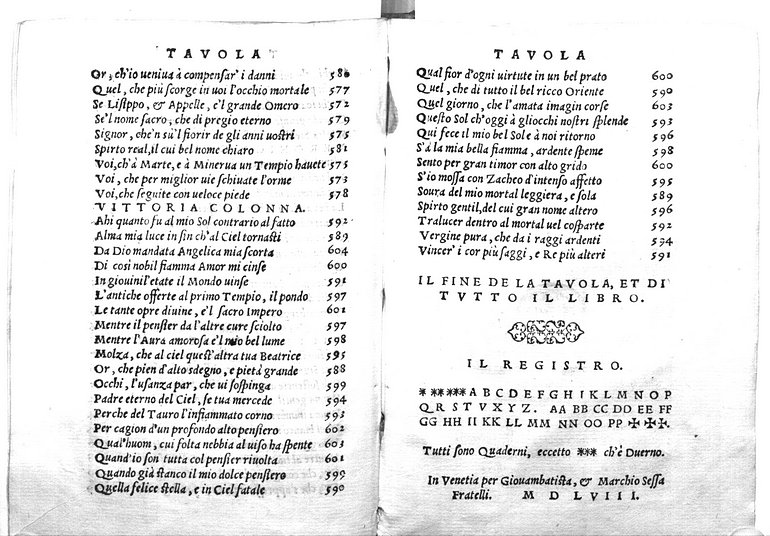 TAVOLA
Or, ch'io veniua à compensar' i danni 580
Quel, che più scorge in uoi l'occhio mortale 577
Se Lisippo, & Appelle, e'l grande Omero 572
Se'l nome sacro, che di pregio eterno 579
Signor, che'n sù'l fiorir de gli anni uostri 575
Spirto real, il cui bel nome chiaro 581
Voi, ch'à Marte, e à Minerua un Tempio hauete 575
Voi, che per miglior uie schiuate l'orme 573
Voi, che seguite con ueloce piede 578
VITTORIA COLONNA.
Ahi quanto fu al mio Sol contrario al fatto 592
Alma mia luce in fin ch'al Ciel tornasti 589
Da Dio mandata Angelica mia scorta 604
Di così nobil fiamma Amor mi cinse 600
In giouinil'etate il Mondo uinse 591
L'antiche offerte al primo Tempio, il pondo 597
Le tante opre diuine, e'l sacro Impero 601
Mentre il pensier da l'altre cure sciolto 597
Mentre l'Aura amorosa e'l mio bel lume 598
Molza, che al ciel quest'altra tua Beatrice 595
Or, che pien d'alto sdegno, e pietà grande 588
Occhi, l'usanza par, che ui sospinga 599
Padre eterno del Ciel, se tua mercede 594
Perche del Tauro l'infiammato corno 593
Per cagion d'un profondo alto pensiero 602
Qual'huom, cui folta nebbia al uiso ha spente 603
Quand'io son tutta col pensier riuolta 601
Quando già stanco il mio dolce pensiero 599
Quella felice stella, e in Ciel fatale 590
TAVOLA
Qual fior d'ogni uirtute in un bel prato 600
Quel, che di tutto il bel ricco Oriente 590
Quel giorno, che l'amata imagin corse 603
Questo Sol ch'oggi à gliocchi nostri splende 593
Qui fece il mio bel Sole à noi ritorno 596
S'à la mia bella fiamma, ardente speme 598
Sento per gran timor con alto grido 600
S'io mossa con Zacheo d'intenso affetto 595
Soura del mio mortal leggiera, e sola 589
Spirto gentil, del cui gran nome altero 596
Tralucer dentro al mortal uel cosparte 592
Vergine pura, che da i raggi ardenti 594
Vincer' i cor più saggi, e Re più alteri 591
IL FINE DE LA TAVOLA, ET DI
TVTTO IL LIBRO.
IL REGISTRO.
* ** *** A B C D E F G H I K L M N O P
Q R S T V X Y Z. AA BB CC DD EE FF
GG HH II KK LL MM NN OO PP ✠ ✠ ✠.
Tutti sono Quaderni, eccetto *** ch'è Duerno.
In Venetia per Giouambatista, & Marchio Sessa
Fratelli. M D LVIII.